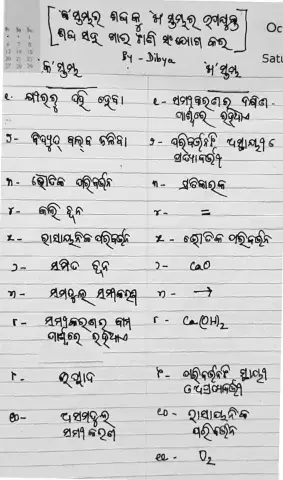 'କ' ସ୍ତମ୍ଭର ଶବ୍ଦ କୁ 'ଖ' ସ୍ତମ୍ଭର ଉପଯୁକ୍ତ
ଶବ୍ଦ ସହ ଗାର ଟାଣି ସଂଯୋଗ କର
Oc
By - Dibya
Satu
'କ' ସ୍ତମ୍ଭ 'ଖ' ସ୍ତମ୍ଭ
୧. କ୍ଷୀରରୁ ଦହି ହେବା ୧- ସମୀକରଣର ଦକ୍ଷିଣ
ପାର୍ଶ୍ୱରେ ରହିଥାଏ
୨- ବିଦ୍ୟୁତ୍ ବଲ୍‌ବ ଜଳିବା ୨- ପରିବର୍ତ୍ତନଟି ଅସ୍ଥାୟୀ ଓ
ପ୍ରତ୍ୟାବର୍ତ୍ତୀ
୩- ଭୌତିକ ପରିବର୍ତ୍ତନ ୩- ପ୍ରତିକାରକ
୪- କଲି ଚୂନ ୪- =
୫- ରାସାୟନିକ ପରିବର୍ତ୍ତନ ୫- ଭୌତିକ ପରିବର୍ତ୍ତନ
୬- ଶମିତ ଚୂନ ୬- CaO
୭- ସମତୁଲ ସମୀକରଣ ୭- →
୮- ସମୀକରଣର ବାମ ୮- Ca(OH)₂
ପାର୍ଶ୍ୱରେ ରହିଥାଏ
୯- ଉତ୍ପାଦ ୯- ପରିବର୍ତ୍ତନଟି ସ୍ଥାୟୀ
ଓ ଅପ୍ରତ୍ୟାବର୍ତ୍ତୀ
୧୦- ଅସମତୁଲ ୧୦- ରାସାୟନିକ
ସମୀକରଣ ପରିବର୍ତ୍ତନ
୧୧- O₂